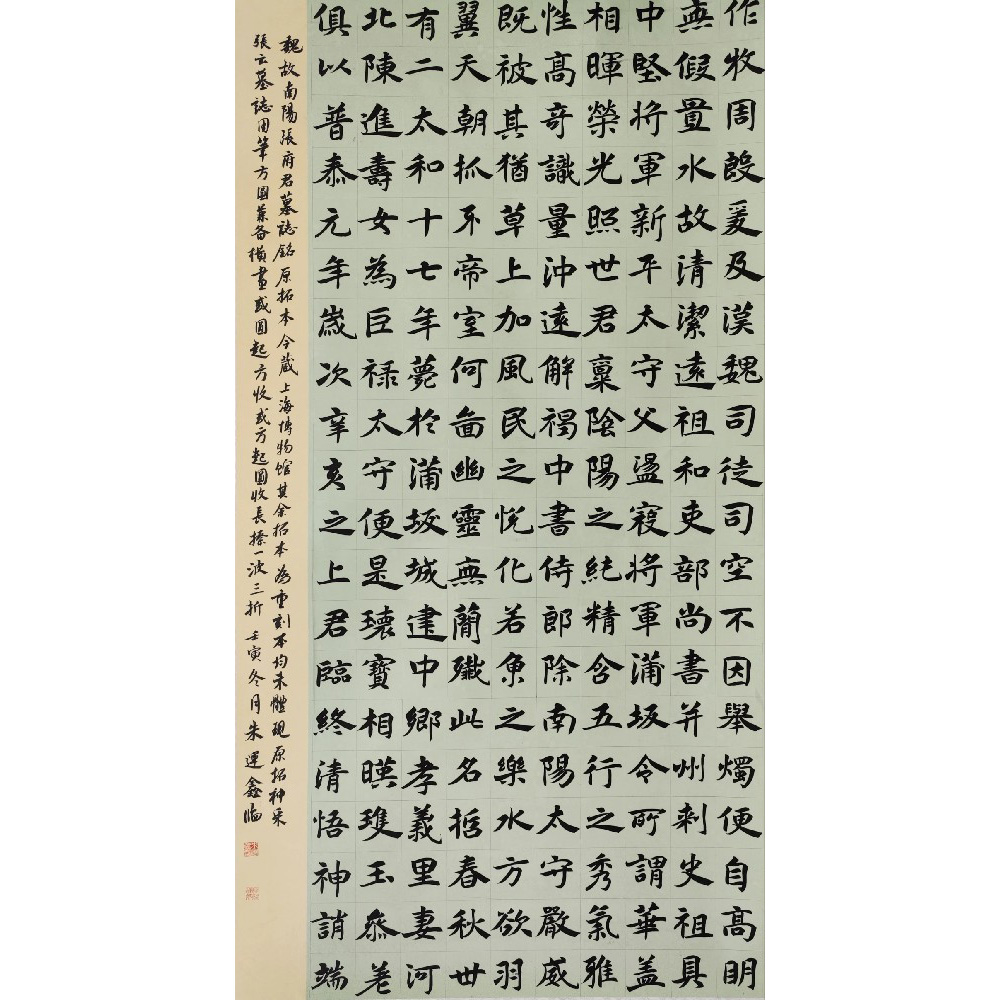 作牧周殷爰及漢魏司徒司空不因舉燭便自高明
無假置水故清潔遠祖和吏部尚書并州刺史祖具
中堅將軍新平太守父盪寇將軍蒲坂令所謂華蓋
相暉榮光照世君稟陰陽之純精含五行之秀氣雅
性高奇識量沖遠解褐中書侍郎除南陽太守嚴威
既被其猶草上加風民之悅化若魚之樂水方欲羽
翼天朝抓牙帝室何啚幽靈無簡殲此名哲春秋世
有二太和十七年薨於蒲坂城建中鄉孝義里妻河
北陳進壽女為巨祿太守便是瓌寶相暎瓊玉參差
俱以普泰元年歲次辛亥之上君臨終清悟神誚端
魏故南陽張府君墓誌銘原拓本今藏上海博物館其余拓本為重刻本均未體現原拓神采
張玄墓誌用筆方圓兼备橫畫或圓起方收或方起圓收長捺一波三折壬寅冬月朱運鑫臨